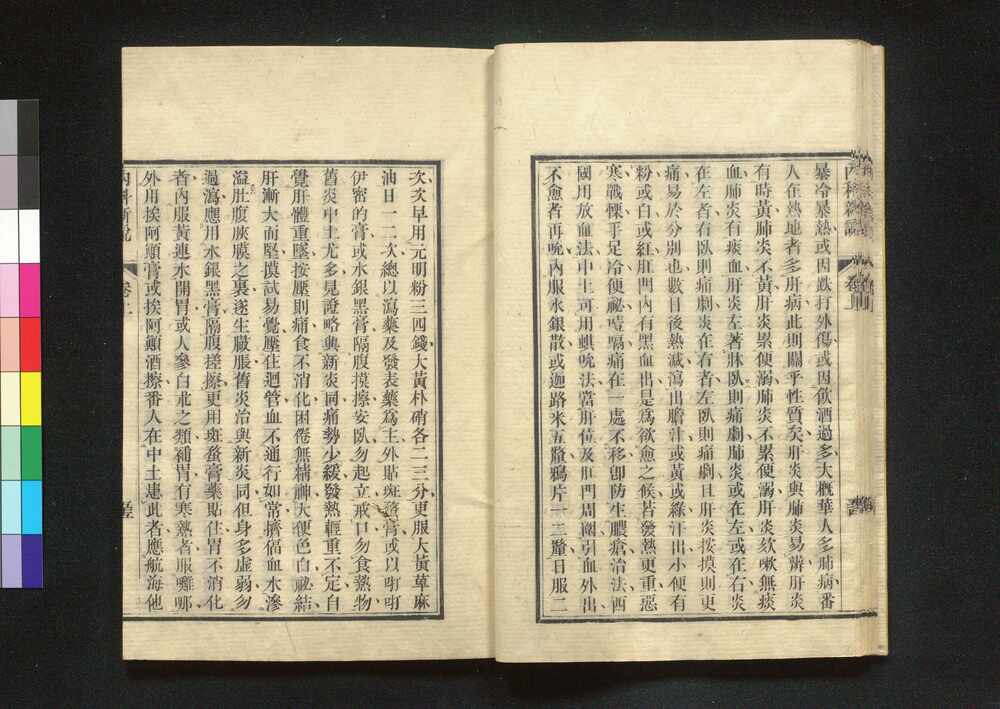 暴冷暴熱或因跌打外傷或因飲酒過多大概華人多肺病番
人在熱地者多肝病此則關乎性質矣肝炎與肺炎易辨肝炎
有時黃肺炎不黃肝炎累便溺肺炎不累便溺肝炎欬嗽無痰
血肺炎有痰血肝炎左著牀臥則痛劇肺炎或在左或在右炎
在左者右臥則痛劇炎在右者左臥則痛劇且肝炎按摸則更
痛易於分別也數日後熱減瀉出膽汁或黃或綠汁出小便有
粉或白或紅肛門內有黑血出是為欲愈之候若發熱更重惡
寒戰慄手足冷便祕噎嗝痛在一處不移卽防生膿瘡治法西
國用放血法中土可用蜞吮法當肝位及肛門周圍引血外出
不愈者再吮內服水銀散或迦路米五釐鴉片一二釐日服二
次次早用元明粉三四錢大黃朴硝各二三分更服大黃萆麻
油日一二次總以瀉藥及發表藥為主外貼斑蝥膏或以叮叮
伊密的膏或水銀黑膏隔腹摸擦安臥勿起立戒口勿食熱物
舊炎中土尤多見證略與新炎同痛勢少緩發熱輕重不定自
覺肝體重墜按壓則痛食不消化困倦無精神大便色白祕結
肝漸大而堅摸試易覺壓住迴管血不通行如常擠偪血水滲
溢肚腹夾膜之裏遂生臌脹舊炎治與新炎同但身多虛弱勿
過瀉應用水銀黑膏隔腹搓擦更用斑蝥膏藥貼住胃不消化
者內服黃連水開胃或人參白朮之類補胃有寒熱者服雞哪
外用挨阿顚膏或挨阿顚酒擦番人在中土患此者應航海他
內科新說
卷上